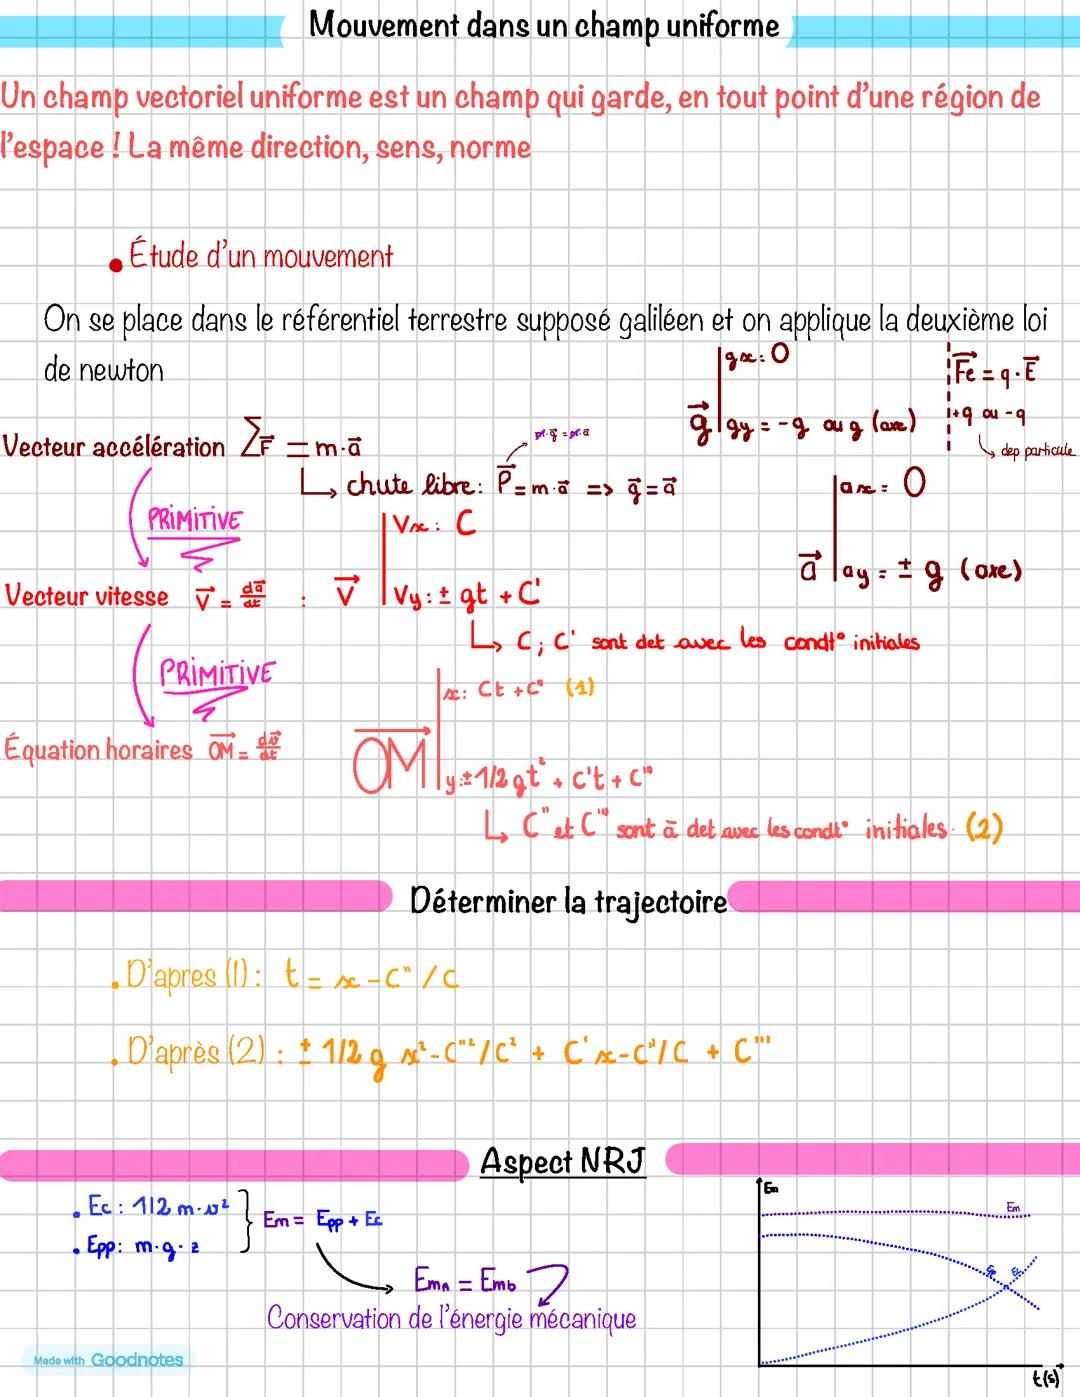 Mouvement dans un champ uniforme
Un champ vectoriel uniforme est un champ qui garde, en tout point d'une région de
l'espace ! La même direction, sens, norme
• Étude d'un mouvement
On se place dans le référentiel terrestre supposé galiléen et on applique la deuxième loi
de newton
g⃗ | gx : 0
gy = -g ou g (axe)
F⃗e = q · E⃗
+q ou -q
↳ dep particule
Vecteur accélération ∑F⃗ = m·a⃗
m·g⃗ = m·a⃗
↳ chute libre : P⃗ = m·a⃗ => g⃗ = a⃗
a⃗ | ax = 0
ay = ± g (axe)
PRIMITIVE
Vecteur vitesse V⃗ = da⃗/dt : V⃗ | Vx : C
Vy : ± gt + C'
↳ C ; C' sont det avec les condt° initiales
PRIMITIVE
Équation horaires OM⃗ = dv⃗/dt
OM⃗ | x : Ct + C" (1)
y : ± 1/2 gt² + C't + C'''
↳ C" et C''' sont à det avec les condt° initiales. (2)
Déterminer la trajectoire
• D'apres (1) : t = x - C" / C
• D'après (2) : ± 1/2 g x² - C"² / C² + C' x - C" / C + C'''
Aspect NRJ
• Ec : 1/2 m·v²
• Epp : m·g·z
} Em = Epp + Ec
EmA = Emb
Conservation de l'énergie mécanique
Em
Em
Ep
Ec
t(s)
Made with Goodnotes